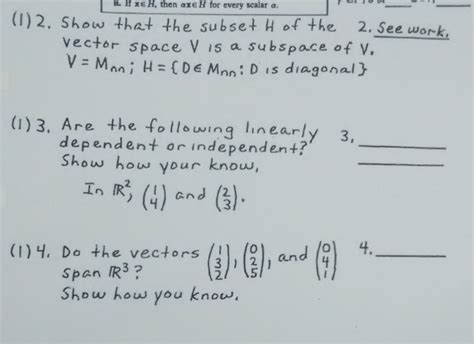 ii. If x∈H, then αx∈H for every scalar α.
(1) 2. Show that the subset H of the vector space V is a subspace of V. 2. See work.
V = Mnn; H = {D∈Mnn: D is diagonal}
(1) 3. Are the following linearly dependent or independent? 3.
Show how your know,
In ℝ², (1 4) and (2 3).
(1) 4. Do the vectors (1 3 2), (0 2 5), and (0 4 1) 4.
span ℝ³?
Show how you know.